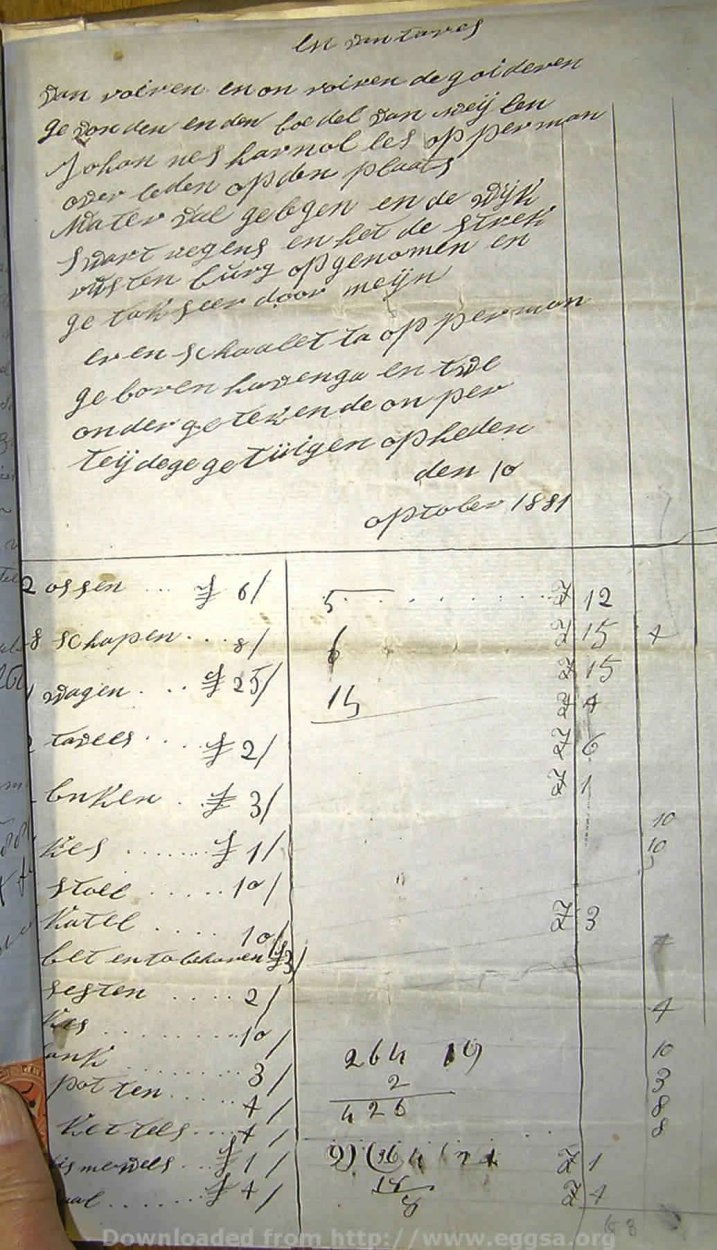 In van tares
van roeren en on roiren de goideren
gevonden en den boedel van weijlen
Johan nes harnol les opperman
over leden op den plaats
Water val gelegen en de wijk
swart regens en het de strek
rusten burg opgenomen en
ge takseer door meijn
eren schaalet ta opperman
geboren havenga en twe
onder getekende on per
teijdege getuigen op heden
den 10
optober 1881
2 ossen ... £ 6/ 5 £ 12
8 schapen ... 8/ 6 £ 15 4
1 wagen ... £ 25/ 15 £ 15
tavels ... £ 2/ £ 4
£ 6
buken . £ 3/ £ 1
kes ...... £ 1/ 10
stoel ...... 10/ 10
katel .... 10/ £ 3
bet en to behoren £3/
segten .... 2/ 4
kas ........ 10/ 10
ank ........ 3/ 264 19 3
potten .... 4/ 2 8
kettels ... 4/ 426 8
£ 1/ £ 1
aal ...... £ 4/ £ 4
68
Downloaded from http://www.eggsa.org